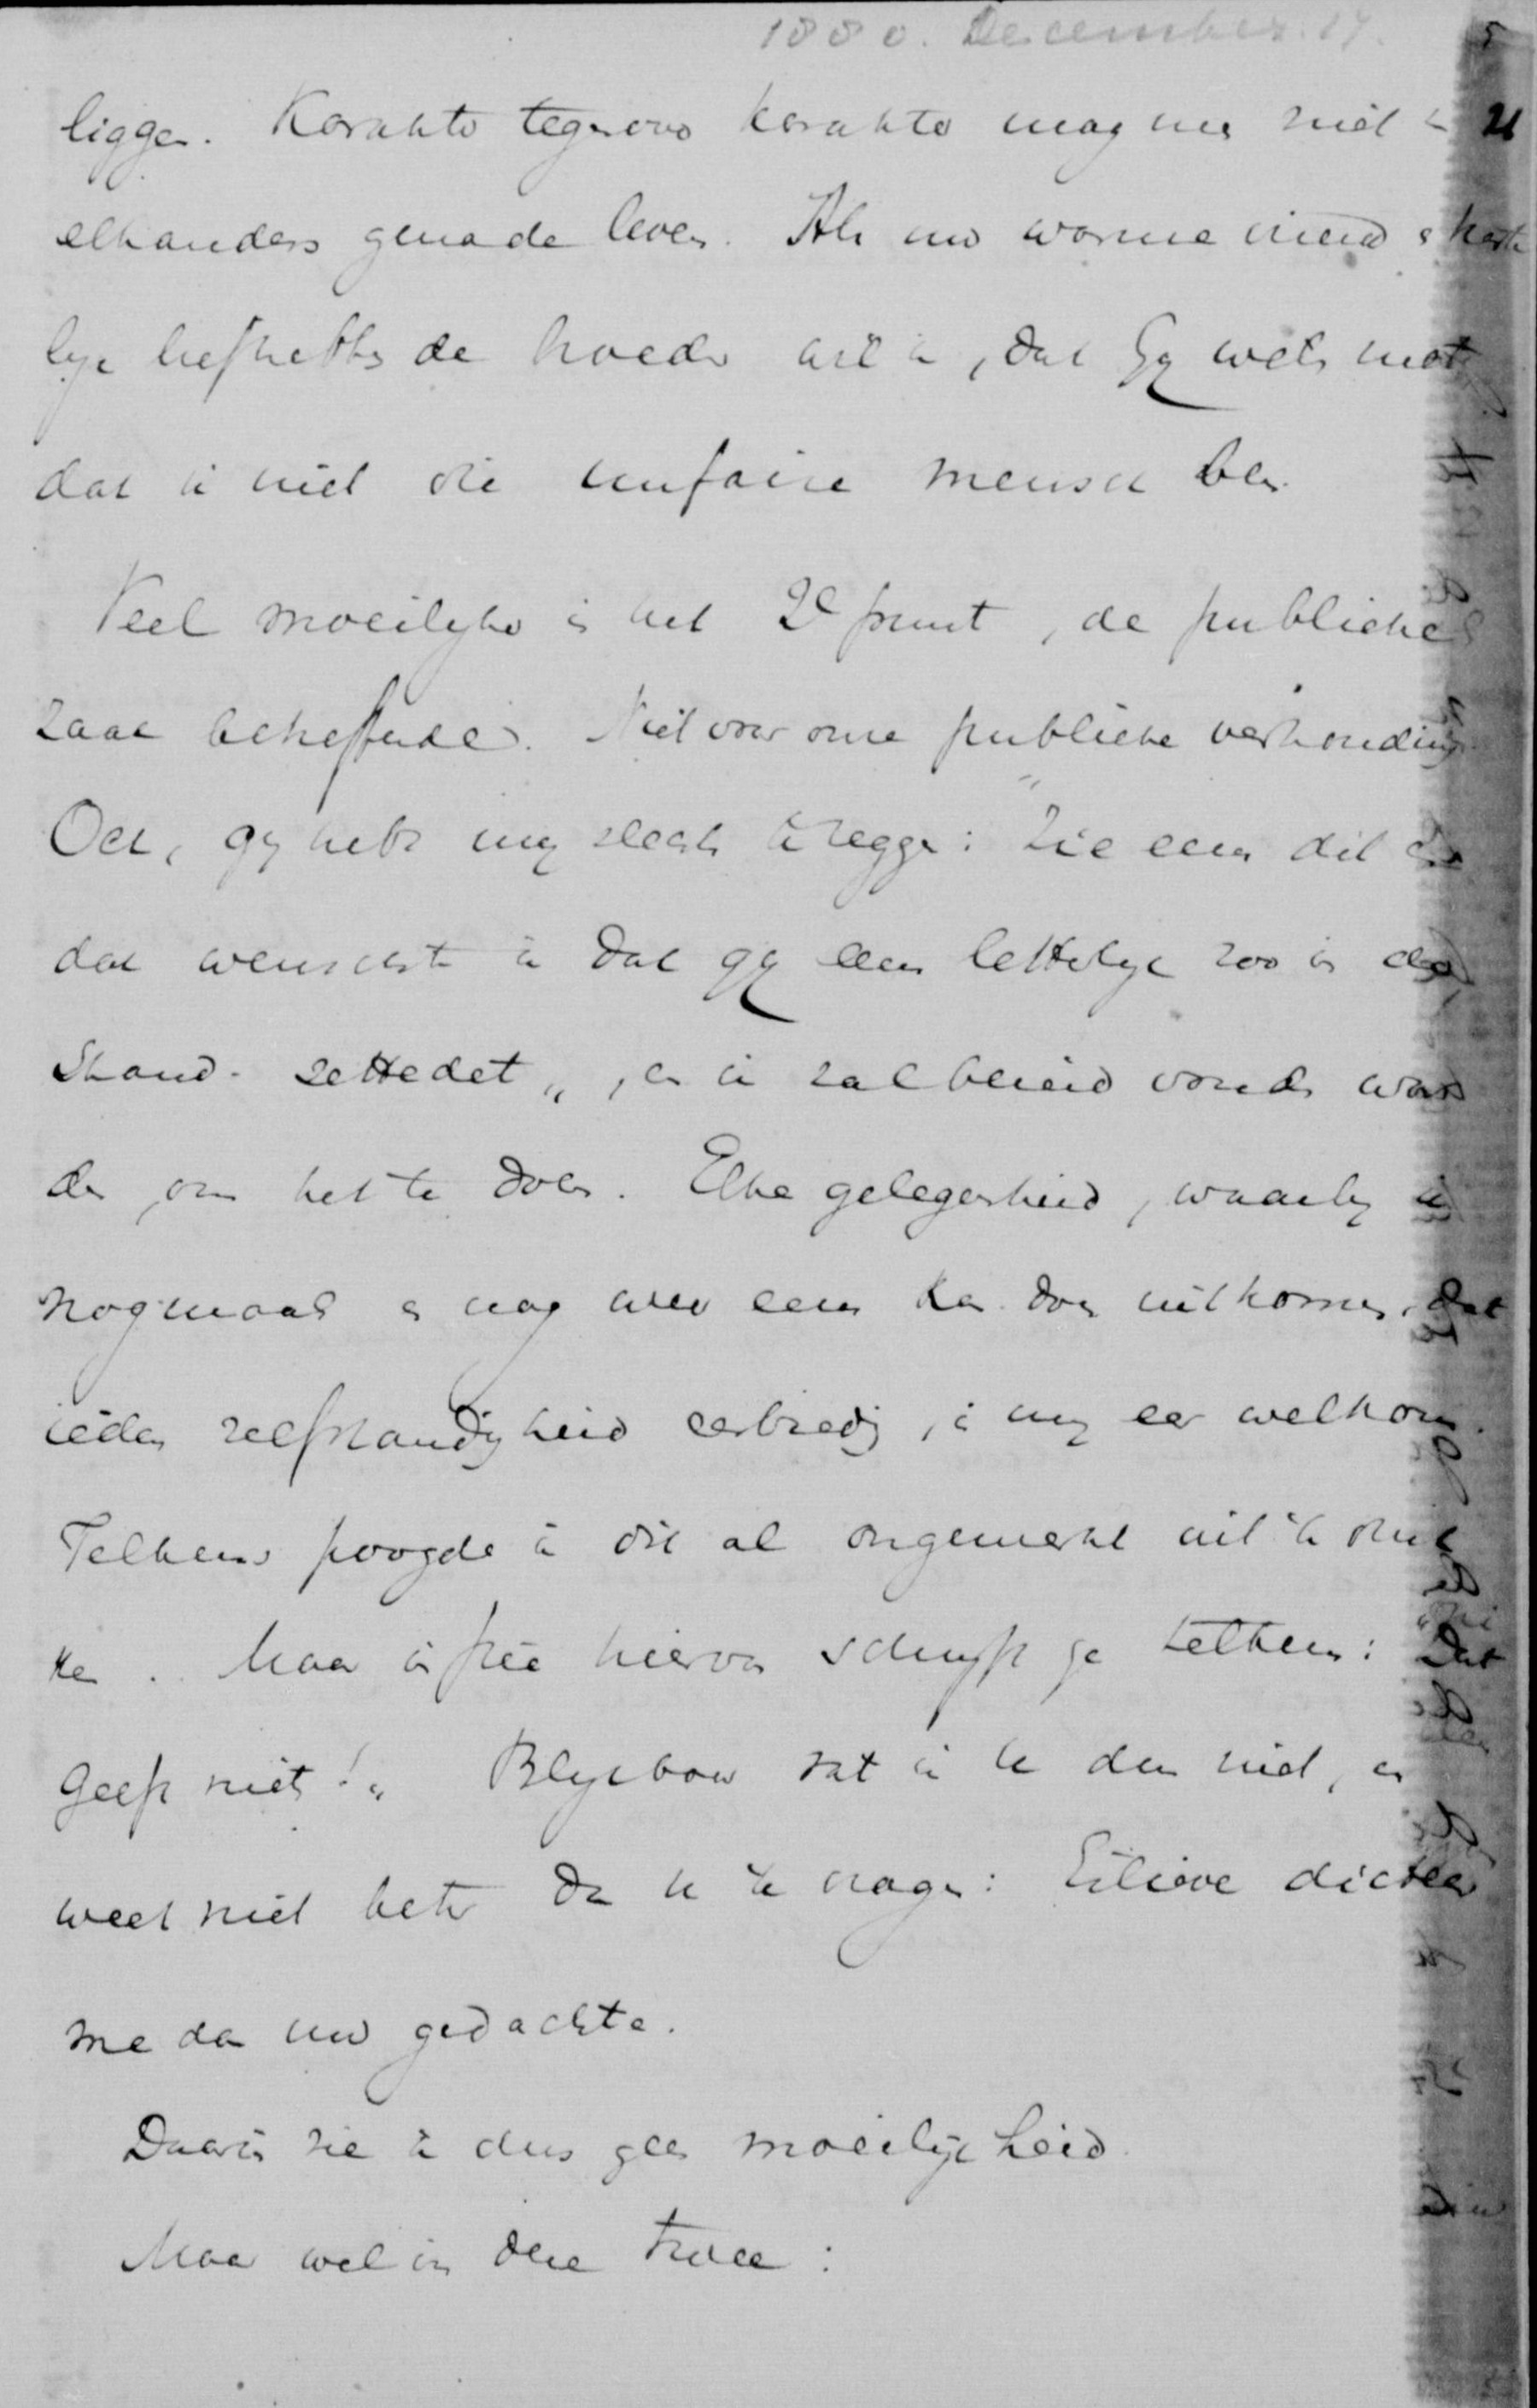 1880. December. 17. 5
liggen. Karakter tegenover karakter mag men niet 21
elkanders genade leven. Als uw warme vriend
lyk liefhebbende broeder wil ik, dat Gy weten moet
dat ik niet die unfaire mensch ben.
Veel moeilyker is het 2e punt, de publieke
zaak betreffende. Niet voor onze publieke verhouding
Och, gy hebt my slechts te zeggen: "Zie eens dit en
dat wenschte ik dat gy eens letterlyk zoo in de
Stand. zettedet", en ik zal bereid vonden wor
den, om het te doen. Elke gelegenheid, waarby ik
nogmaals en nog weer eens kan doen uitkomen, dat
ieders zelfstandigheid eerbiedig, is my eer welkom.
Telkens poogde ik dit al ongemerkt uit te druk
ken. Maar in priv hiervan schryft ge telkens: Dat
geeft niets!" Blykbaar vat ik U dan niet, en
weet niet beter dan U te vragen: Eilieve dicteer
me dan uw gedachte.
Daarin zie ik dus geen moeilykheid.
Maar wel in deze twee: